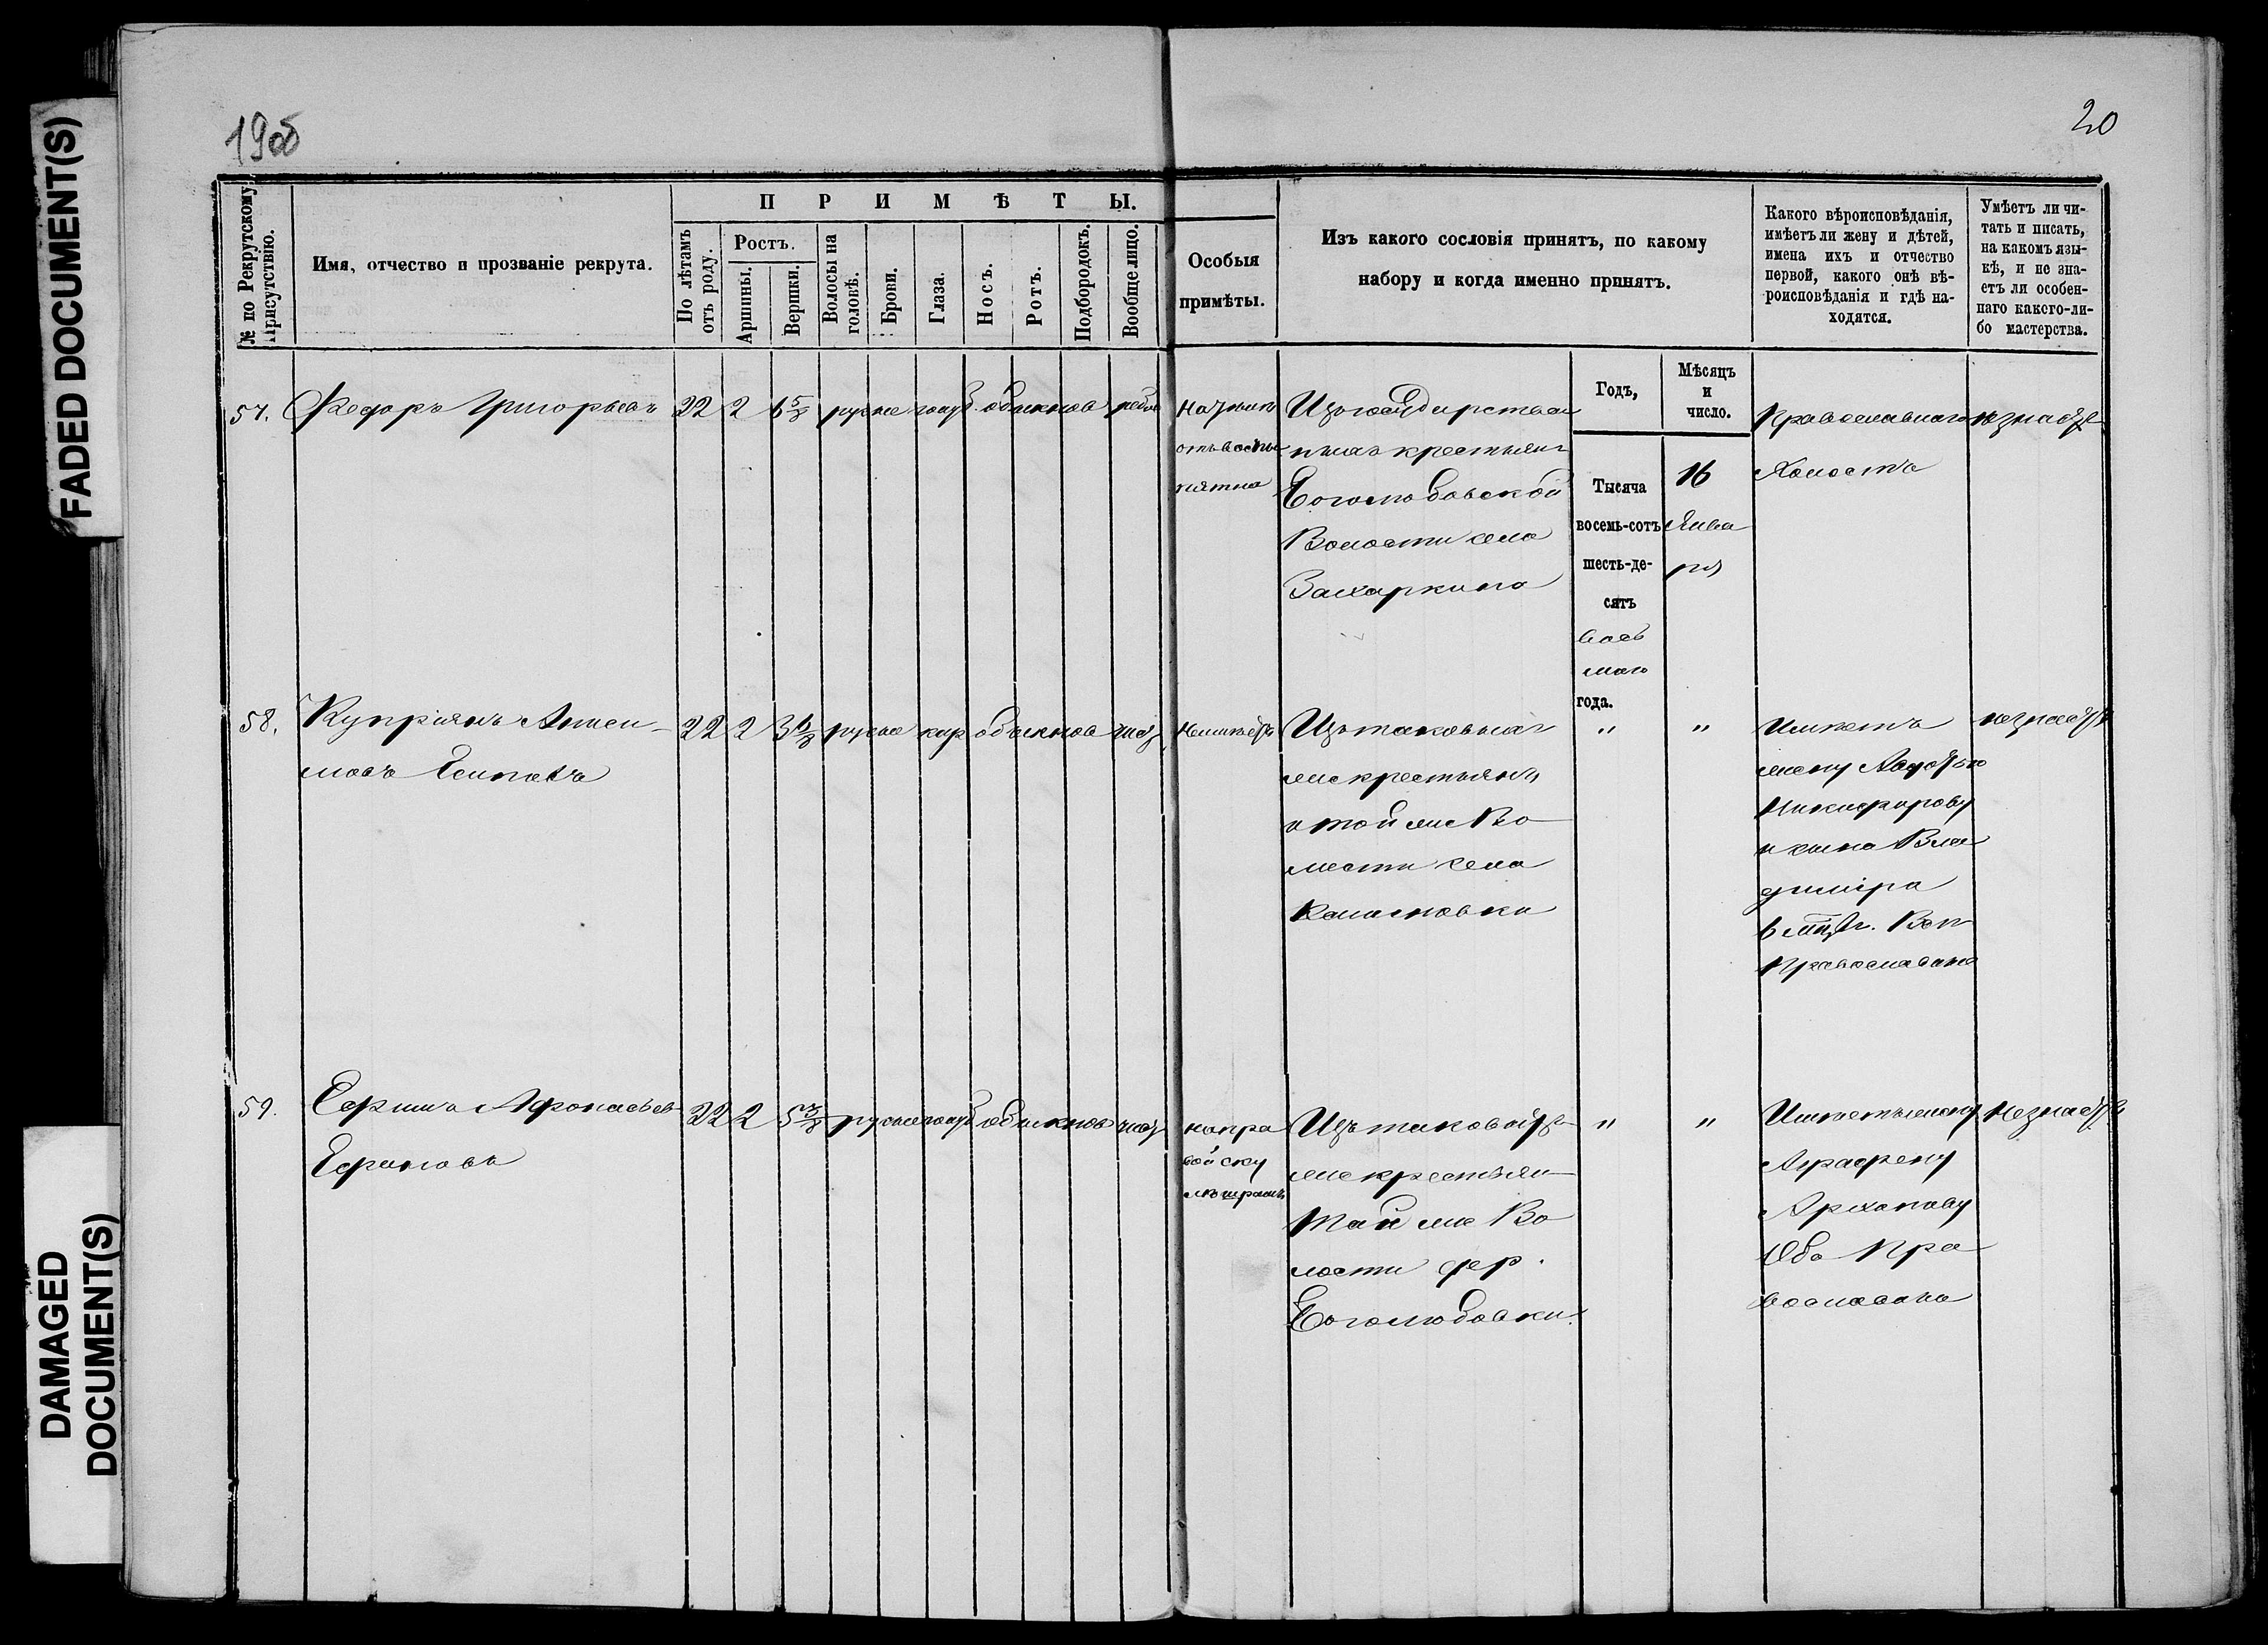 FADED DOCUMENT(S)
DAMAGED
DOCUMENT(S)
19об
20
№ по Рекрутскому
Присутствію.
Имя, отчество и прозваніе рекрута.
П Р И М Ѣ Т Ы.
По лѣтамъ
отъ роду.
Ростъ.
Аршины.
Вершки.
Волосы на
головѣ.
Брови.
Глаза.
Носъ.
Ротъ.
Подбородокъ.
Вообще лицо.
Особыя
примѣты.
Изъ какого сословія принятъ, по какому
набору и когда именно принятъ.
Какого вѣроисповѣданія,
имѣетъ ли жену и дѣтей,
имена ихъ и отчество
первой, какого онѣ вѣ-
роисповѣданія и гдѣ на-
ходятся.
Умѣетъ ли чи-
тать и писать,
на какомъ язы-
кѣ, и не зна-
етъ ли особен-
наго какого-ли-
бо мастерства.
Годъ,
Мѣсяцъ
и
число.
57. Федоръ Григорьевъ 22 2 6 5/8 русые голуб обыкнов рябое
отъ воспы
пятна
Изъ государствен
ныхъ крестьянъ
Боголюбовской
Волости села
Захаркина
Тысяча
восемь-сотъ
шесть-де-
сятъ
вось
маго
года.
16
Янва
ря
Православнаго
Холостъ
незнаетъ
58. Купріянъ Аниси-
мовъ Есиповъ
22 2 3 6/8 русые кар обыкнов чис
Неимѣетъ
Изъ таковыхъ
же крестьянъ
и той же Во
лости села
" "
Имѣетъ
жену Авдотью
Никифорову
и сына Вла
диміра
6 мѣц.
Православные
незнаетъ
59. Ефимъ Афонасьев
Ефимовъ
22 2 5 3/8 русые голуб обыкнов чис
на пра
вой ску
лѣ шрамъ
Изъ таковыхъ
же крестьян
Той же Во
лости дер.
Боголюбовки.
" "
Имѣетъ жену
Аграфену
Архипову
Оба Пра
вославные
Незнаетъ